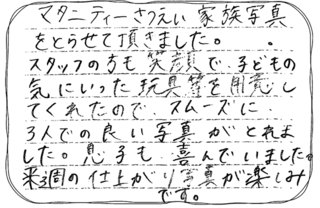 マタニティーさつえい 家族写真
をとらせて頂きました。
スタッフの方も笑顔で、子どもの
気にいった玩具等を用意し
てくれたので スムーズに
3人での良い写真がとれま
した。息子も 喜んでいました。
来週の仕上がり写真が楽しみ
です。